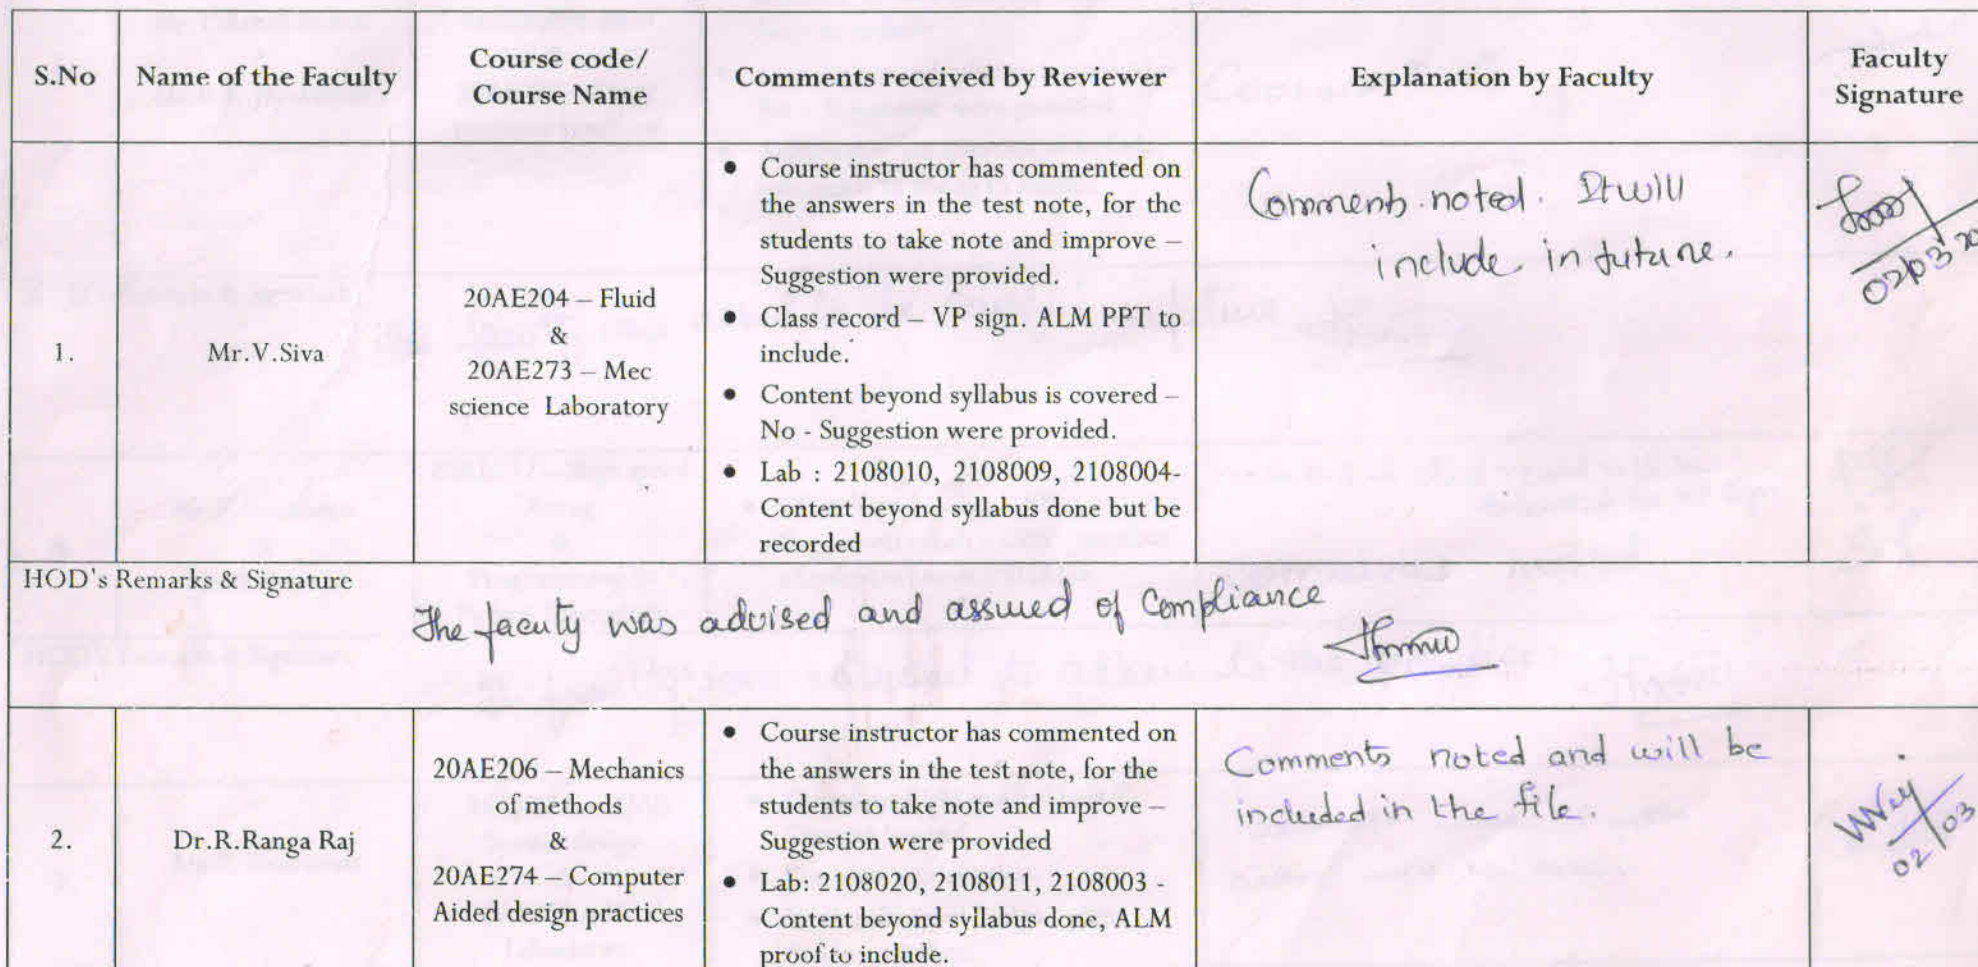 S.No
Name of the Faculty
Course code/
Course Name
Comments received by Reviewer
Explanation by Faculty
Faculty
Signature
1.
Mr.V.Siva
20AE204 – Fluid
&
20AE273 – Mec
science Laboratory
• Course instructor has commented on
the answers in the test note, for the
students to take note and improve –
Suggestion were provided.
• Class record – VP sign. ALM PPT to
include.
• Content beyond syllabus is covered –
No - Suggestion were provided.
• Lab : 2108010, 2108009, 2108004-
Content beyond syllabus done but be
recorded
Comments noted. It will
include in future.
02/03/20
HOD's Remarks & Signature
The facuty was advised and assured of Compliance
2.
Dr.R.Ranga Raj
20AE206 – Mechanics
of methods
&
20AE274 – Computer
Aided design practices
• Course instructor has commented on
the answers in the test note, for the
students to take note and improve –
Suggestion were provided
• Lab: 2108020, 2108011, 2108003 -
Content beyond syllabus done, ALM
proof to include.
Comments noted and will be
included in the file.
02/03